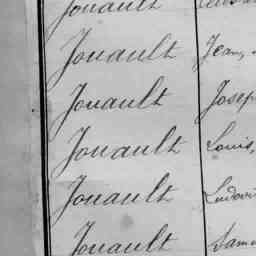 Jouault
Jouault Jean,
Jouault Josep
Jouault Louis,
Jouault Ludovi
Jouault